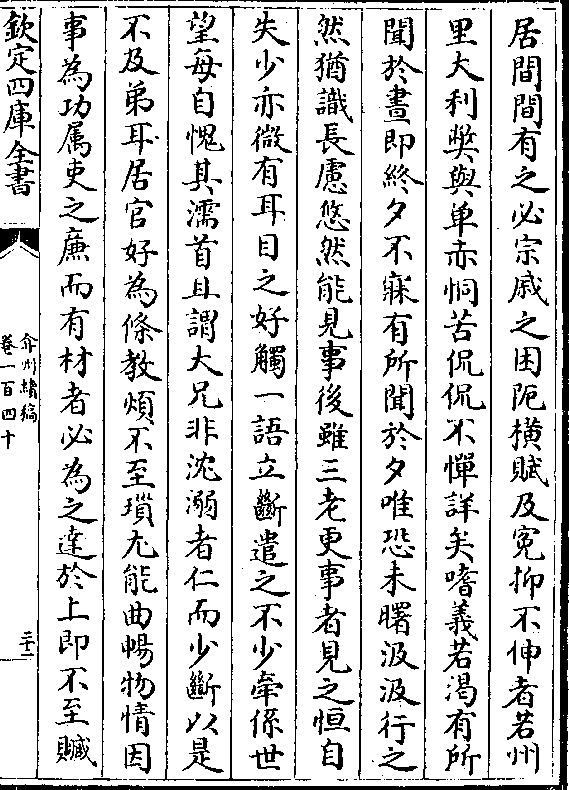 居間間有之必宗戚之困阨橫賦及冤抑不伸者若州
里大利弊與单赤恫苦侃侃不憚詳矣嗜義若渴有所
聞於晝即終夕不寐有所聞於夕唯恐未曙汲汲行之
然猶識長慮悠然能見事後雖三老更事者見之恒自
失少亦微有耳目之好觸一語立斷遣之不少牽係世
望每自愧其濡首且謂大兄非沈溺者仁而少斷以是
不及弟耳居官好為條教煩不至瑣尤能曲暢物情因
事為功属吏之廉而有材者必為之達於上即不至贓
欽定四庫全書
弇州續稿
卷一百四十
三十二